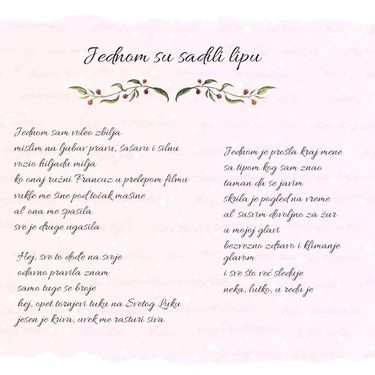 Jednom su sadili lipu
Jednom sam voleo zbilja
mislim na ljubav pravu, šašavu i silnu
vozio hiljadu milja
ko onaj ružni Francuz u prelepom filmu
vukle me šine pod točak mašine
al ona me spasila
sve je druge ugasila
Hej, sve to dođe na svoje
odavno pravila znam
samo tuge se broje
hej, opet tornjevi tuku na Svetog Luku
jesen je kriva, uvek me rasturi siva
Jednom je prošla kraj mene
sa tipom kog sam znao
taman da se javim
skrila je pogled na vreme
al' sasvim dovoljno za žur
u mojoj glavi
bezvezno zdravo i klimanje
glavom
i sve što već sleduje
neka, lutko, u redu je